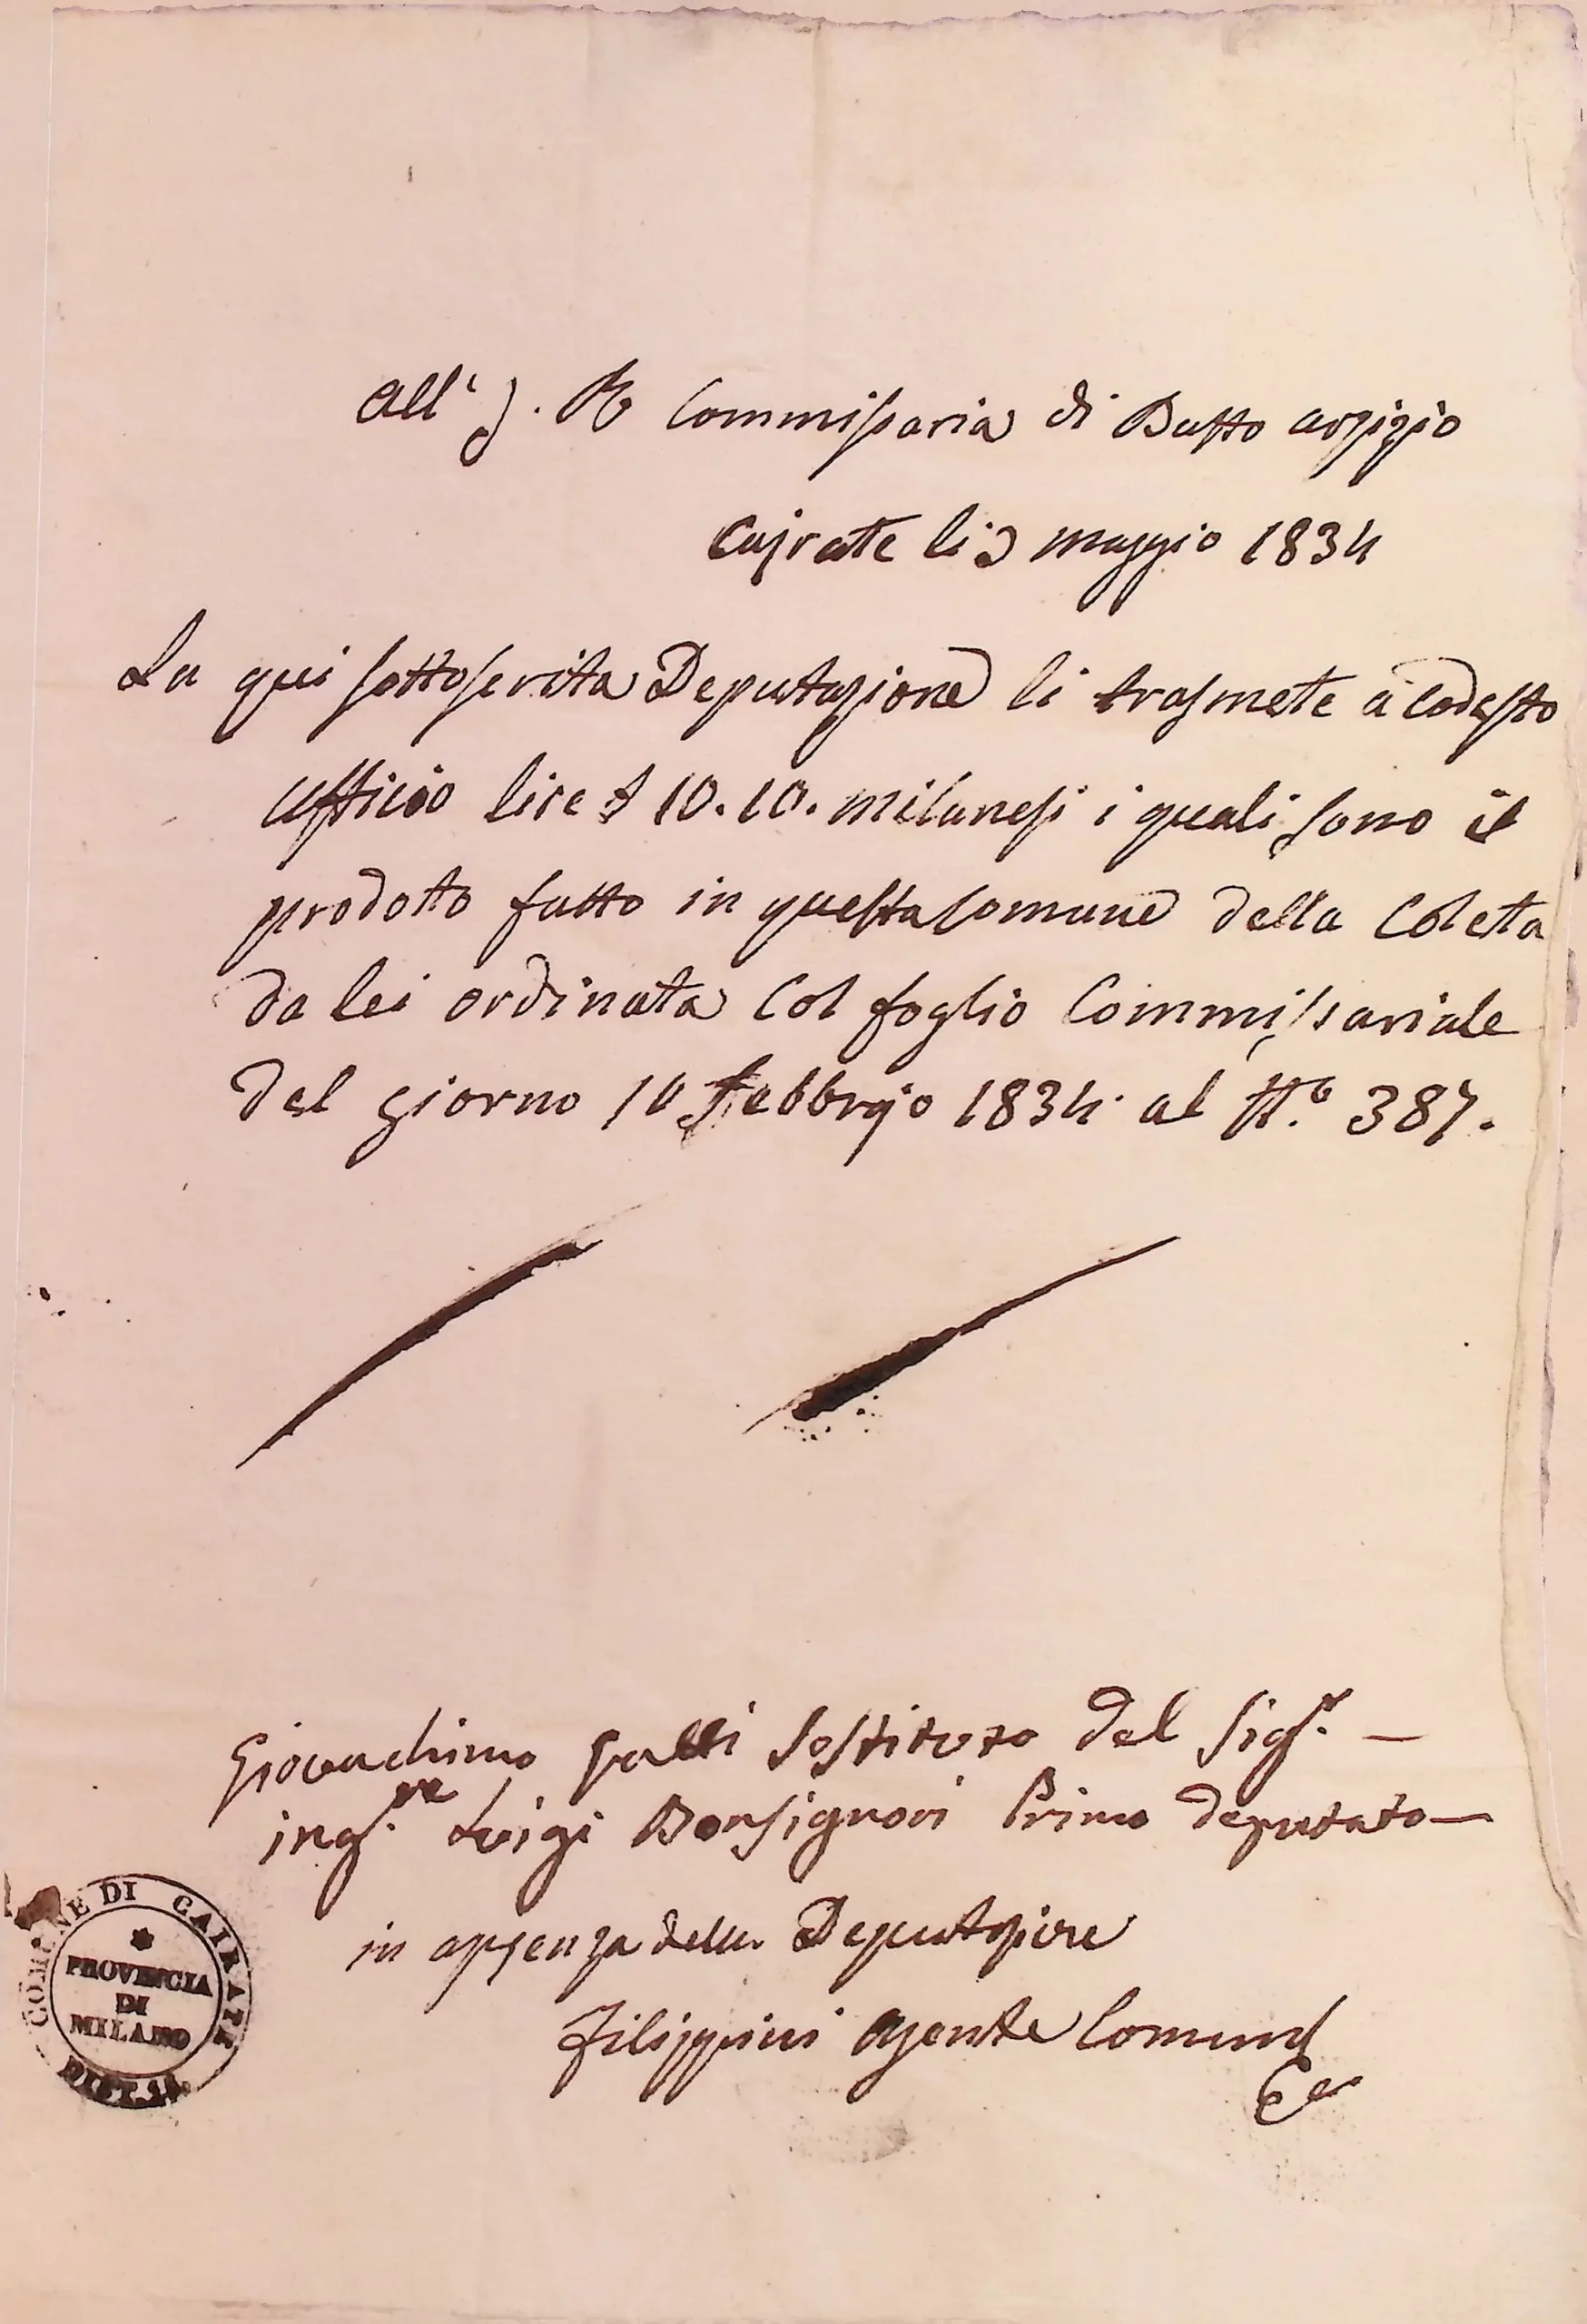 All' J. R Commissaria di Busto arsizio
Cajrate li 3 maggio 1834
La qui sottoscrita Deputazione li trasmete a codesto
ufficio lire 10.10. milanesi i quali sono il
prodotto fatto in questa Comune della Coleta
da lei ordinata Col foglio Commissariale
del giorno 10 febbrajo 1834 al N.º 387.
Giovachimo Galli Sostituto del Sig.r —
ing.re Luigi Bonsignori Primo deputato —
in assenza della Deputazione
Filippini Agente Comunl
COMUNE DI CAIRATE
PROVINCIA
DI
MILANO
DIST.